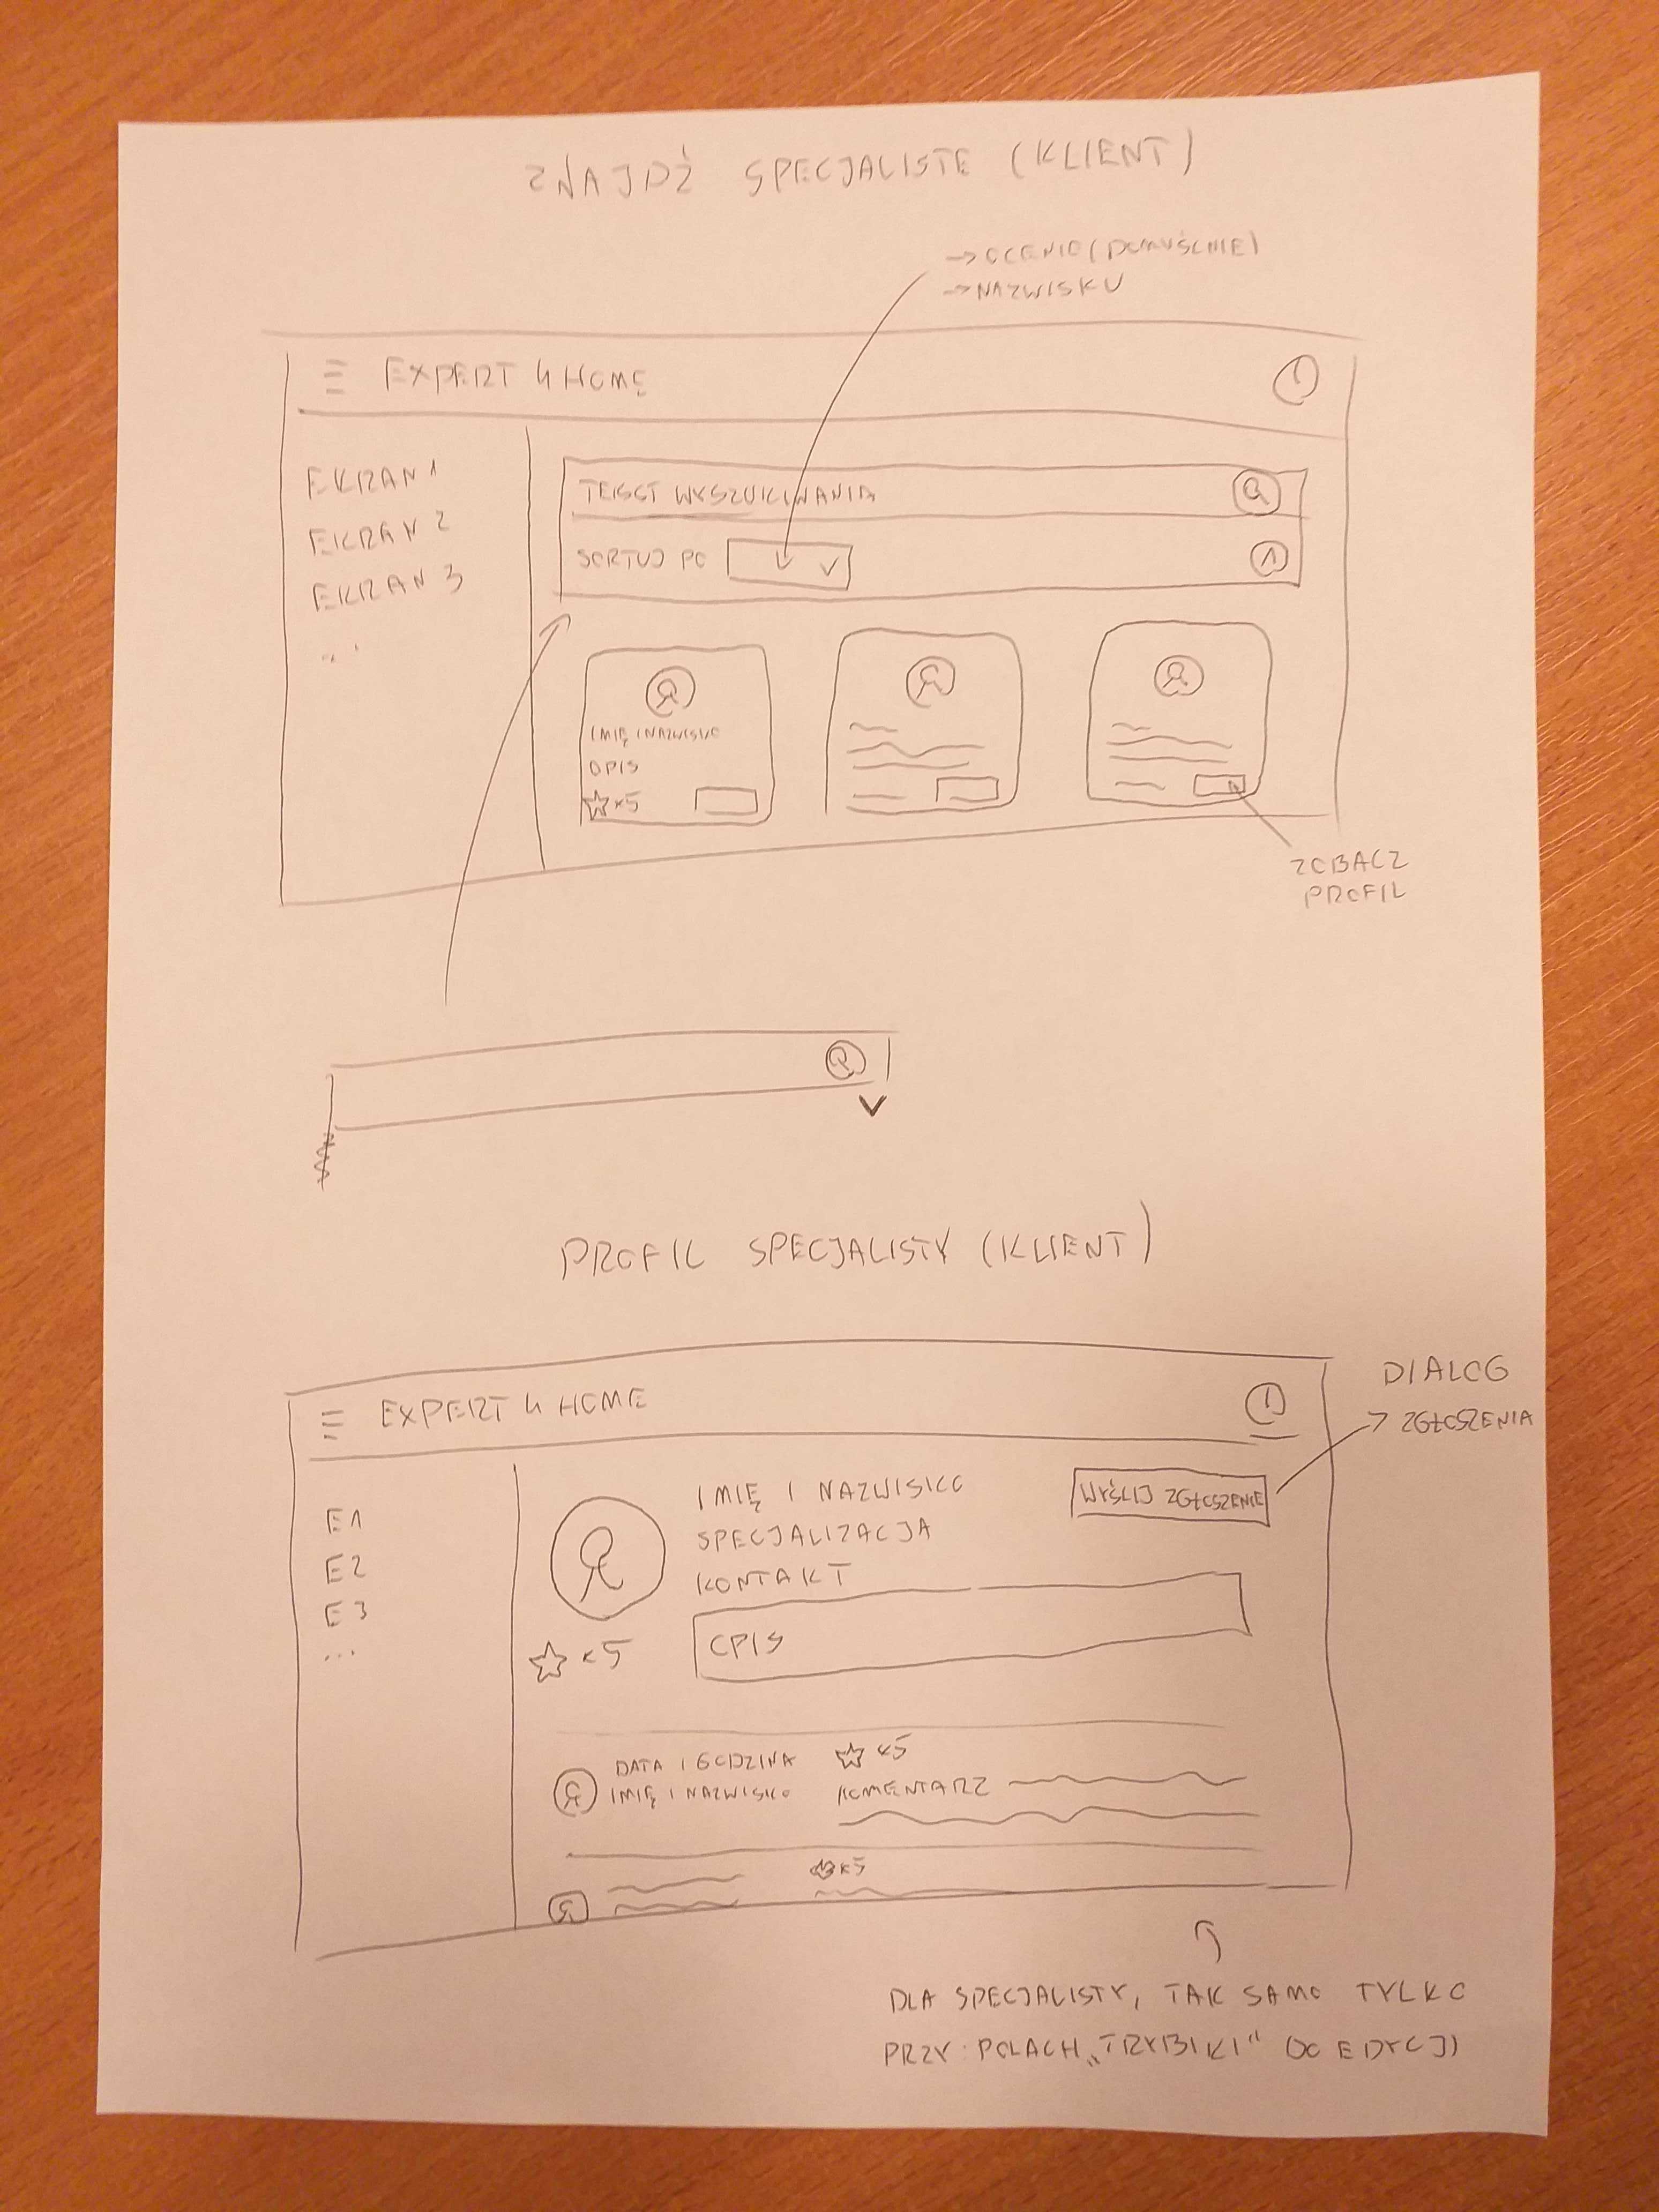 ZNAJDŹ SPECJALISTE (KLIENT)
→ OCENIE (DOMYŚLNIE)
→ NAZWISKU
EXPERT 4 HOME
EKRAN 1
EKRAN 2
EKRAN 3
...
TEKST WYSZUKIWANIA
SORTUJ PO
IMIĘ I NAZWISKO
OPIS
☆ x5
ZOBACZ
PROFIL
PROFIL SPECJALISTY (KLIENT)
EXPERT 4 HOME
DIALOG
→ ZGŁOSZENIA
E1
E2
E3
...
IMIĘ I NAZWISKO
SPECJALIZACJA
KONTAKT
WYŚLIJ ZGŁOSZENIE
OPIS
☆ x5
DATA I GODZINA
IMIĘ I NAZWISKO
☆ x5
KOMENTARZ
☆ x5
DLA SPECJALISTY, TAK SAMO TYLKO
PRZY POLACH „TRYBIKI" DO EDYCJI